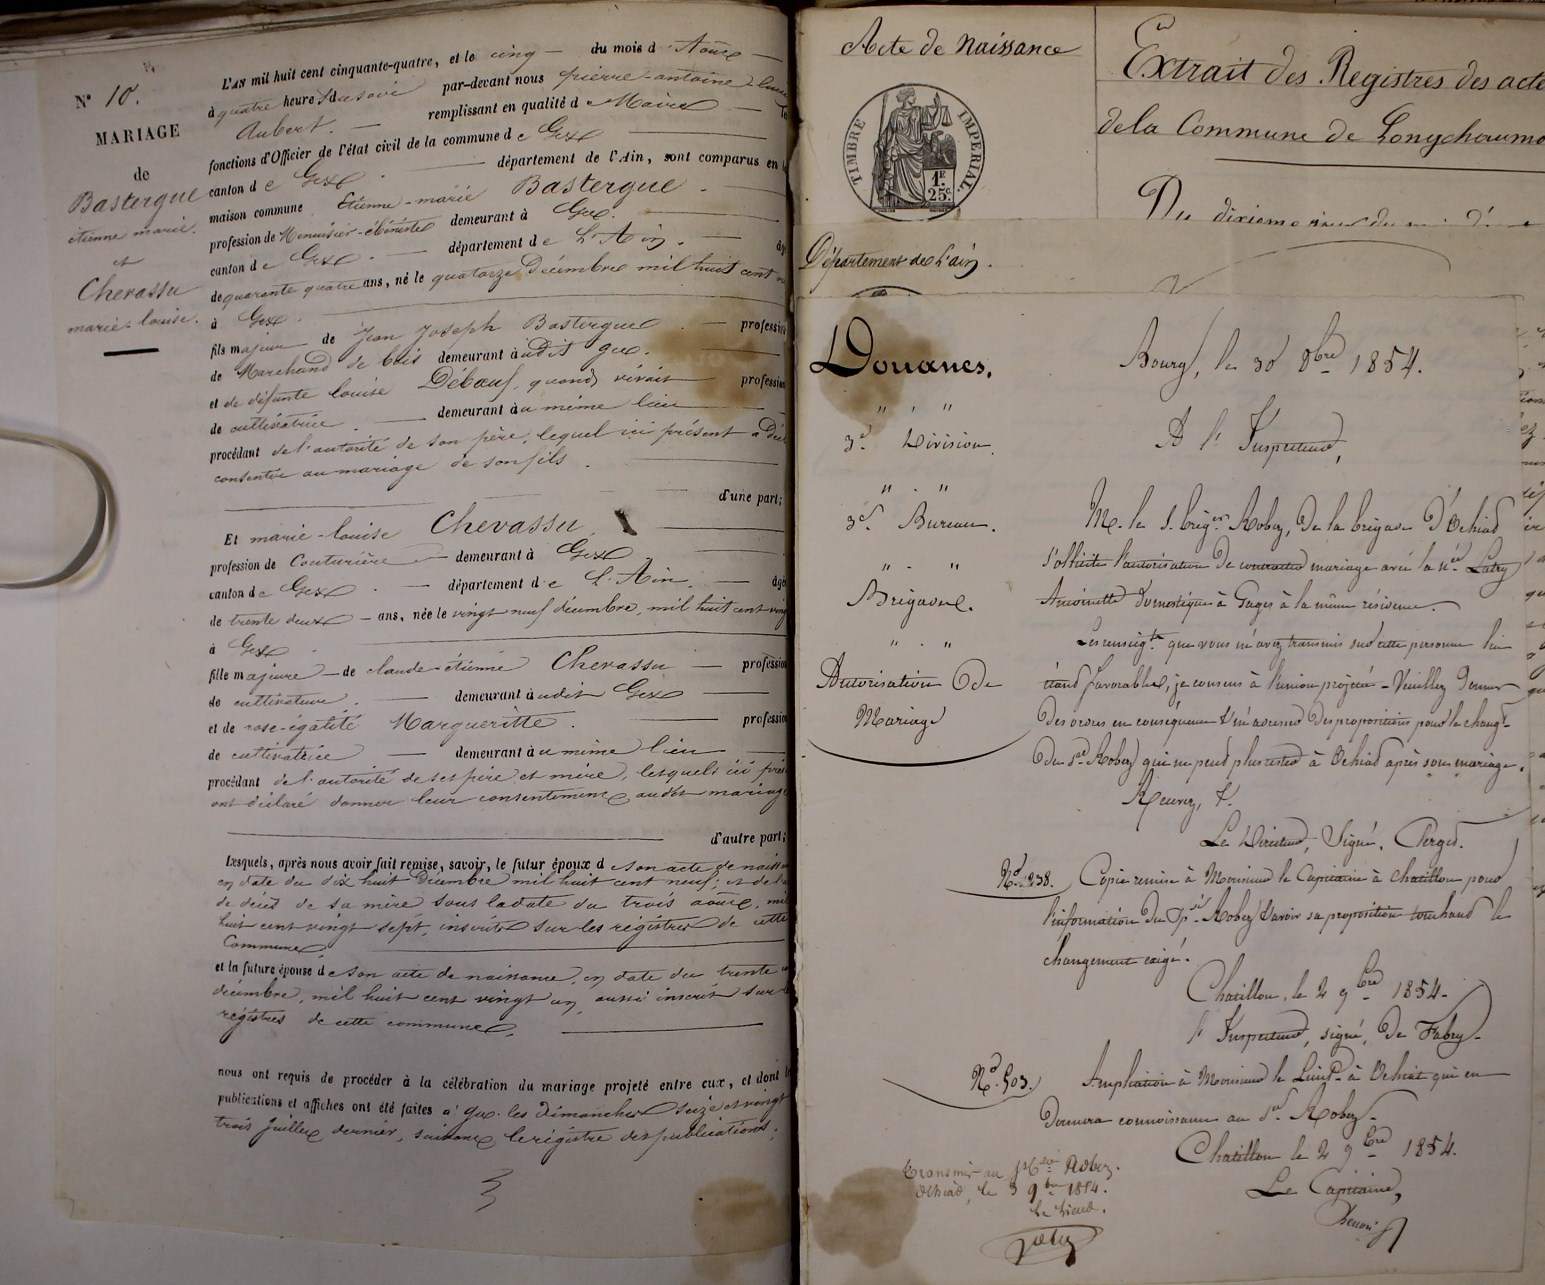 N° 10.
MARIAGE
de
Bastergue
étienne marie.
et
Chevassu
marie-louise.
L'AN mil huit cent cinquante-quatre, et le cinq du mois d Août
à quatre heures du soir par-devant nous pierre-antoine
Aubert. remplissant en qualité de Maire
fonctions d'Officier de l'état civil de la commune de Gex
canton de Gex département de l'Ain, sont comparus en
maison commune Etienne-marie Bastergue.
profession de Menuisier-ébéniste demeurant à Gex.
canton de Gex. département de L'Ain. âgé
de quarante quatre ans, né le quatorze Décembre mil huit cent
à Gex
fils majeur de Jean Joseph Bastergue profession
de Marchand de bois demeurant à udit gex.
et de défunte louise Débœuf, quand vivait profession
de cultivatrice. demeurant au même lieu
procédant de l'autorité de son père, lequel ici présent a
consentir au mariage de son fils.
d'une part;
Et marie-louise Chevassu
profession de Couturière demeurant à Gex
canton de Gex département de L'Ain. âgée
de trente deux ans, née le vingt neuf décembre, mil huit cent
à Gex
fille majeure de claude-étienne Chevassu profession
de cultivateur. demeurant audit Gex
et de rose-égalité Margueritte. profession
de cultivatrice demeurant au même lieu
procédant de l'autorité de ses père et mère, lesquels ici
ont déclaré donner leur consentement audit mariage
d'autre part;
Lesquels, après nous avoir fait remise, savoir, le futur époux de son acte de
en date du dix huit Décembre mil huit cent neuf; et de
de décès de sa mère sous la date du trois août, mil
huit cent vingt sept, inscrits sur les régistres de cette
Commune
et la future épouse de son acte de naissance, en date du trente
décembre, mil huit cent vingt un, aussi inscrit sur
régistres de cette commune,
nous ont requis de procéder à la célébration du mariage projeté entre eux, et dont
publications et affiches ont été faites à gex. les Dimanches seize et vingt
trois juillet dernier, suivant le régistre des publications;
Acte de Naissance
TIMBRE IMPERIAL.
1F.
25c.
Extrait des Registres des acte
de la Commune de Longchaumo
Du dixieme jour du
Département de L'ain.
Douanes.
" , "
3e. Division.
" . "
3e. Bureau.
" . "
Brigade.
" . "
Autorisation de
Mariage
Bourg, le 30 8bre 1854.
A l'Inspecteur,
M. le s. brigr. Robez, de la brigade d'Ochiad
sollicite l'autorisation de contracter mariage avec la née Latry
Antoinette domestique à Gages à la même résidence.
Les renseigts. que vous m'avez transmis sur cette personne lui
étant favorables, je consens à l'union projetée - Veuillez donner
des ordres en conséquence & m'adresser des propositions pour le changt.
du sr. Robez qui ne peut plus rester à Ochiad après son mariage.
Recevez, &.
Le Directeur, Signé,
No. 1238. Copie remise à Monsieur le Capitaine à Chatillon pour
l'information du Robez & avoir sa proposition touchant le
changement exigé.
Chatillon, le 2 9bre 1854.
l'Inspecteur, signé, De Fabry
No. 503. Ampliation à Monsieur le Lieut. à Ochiat qui en
donnera connoissance au sr. Robez.
Chatillon le 2 9bre 1854.
Le Capitaine,
Transmis au Robez.
Ochiad, le 3 9bre 1854.
Le Lieut.